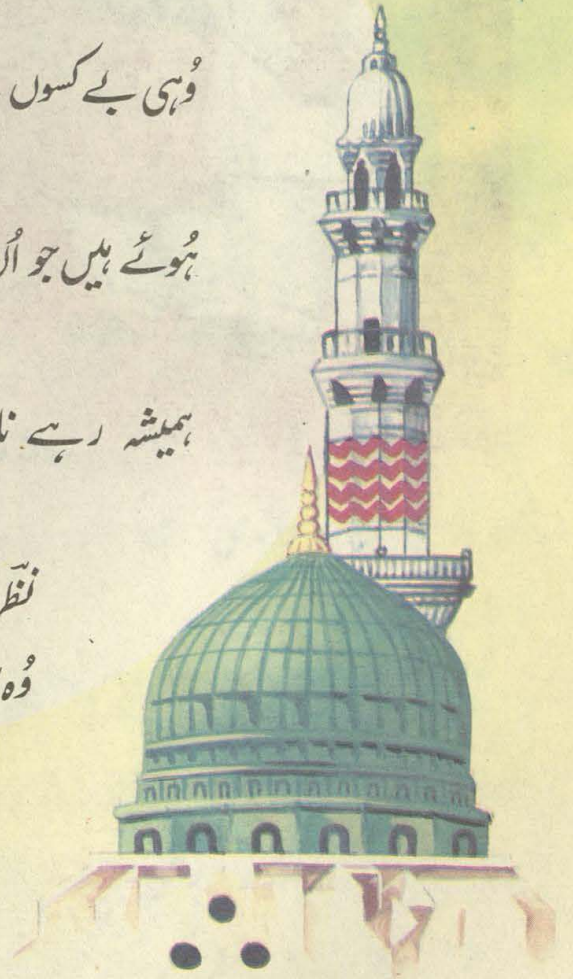 وُہی بے کسوں
ہُوئے ہیں جو
ہمیشہ رہے
نظر
وُہ